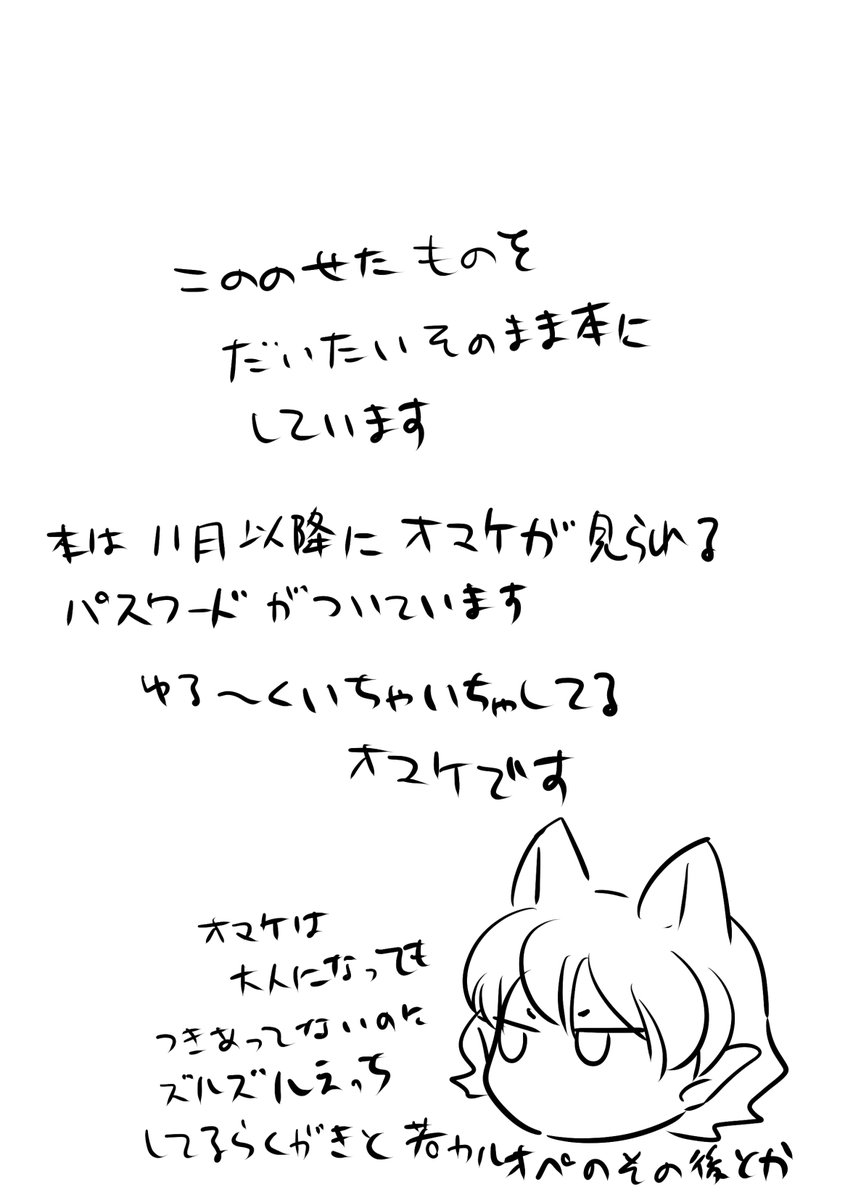 こののせたものを
だいたいそのまま本に
しています
本は 11月以降に オマケが見られる
パスワードがついています
ゆる〜くいちゃいちゃしてる
オマケです
オマケは
大人になっても
つきあってないのに
ズルズルえっち
してるらくがきと 若カルオペのその後とか